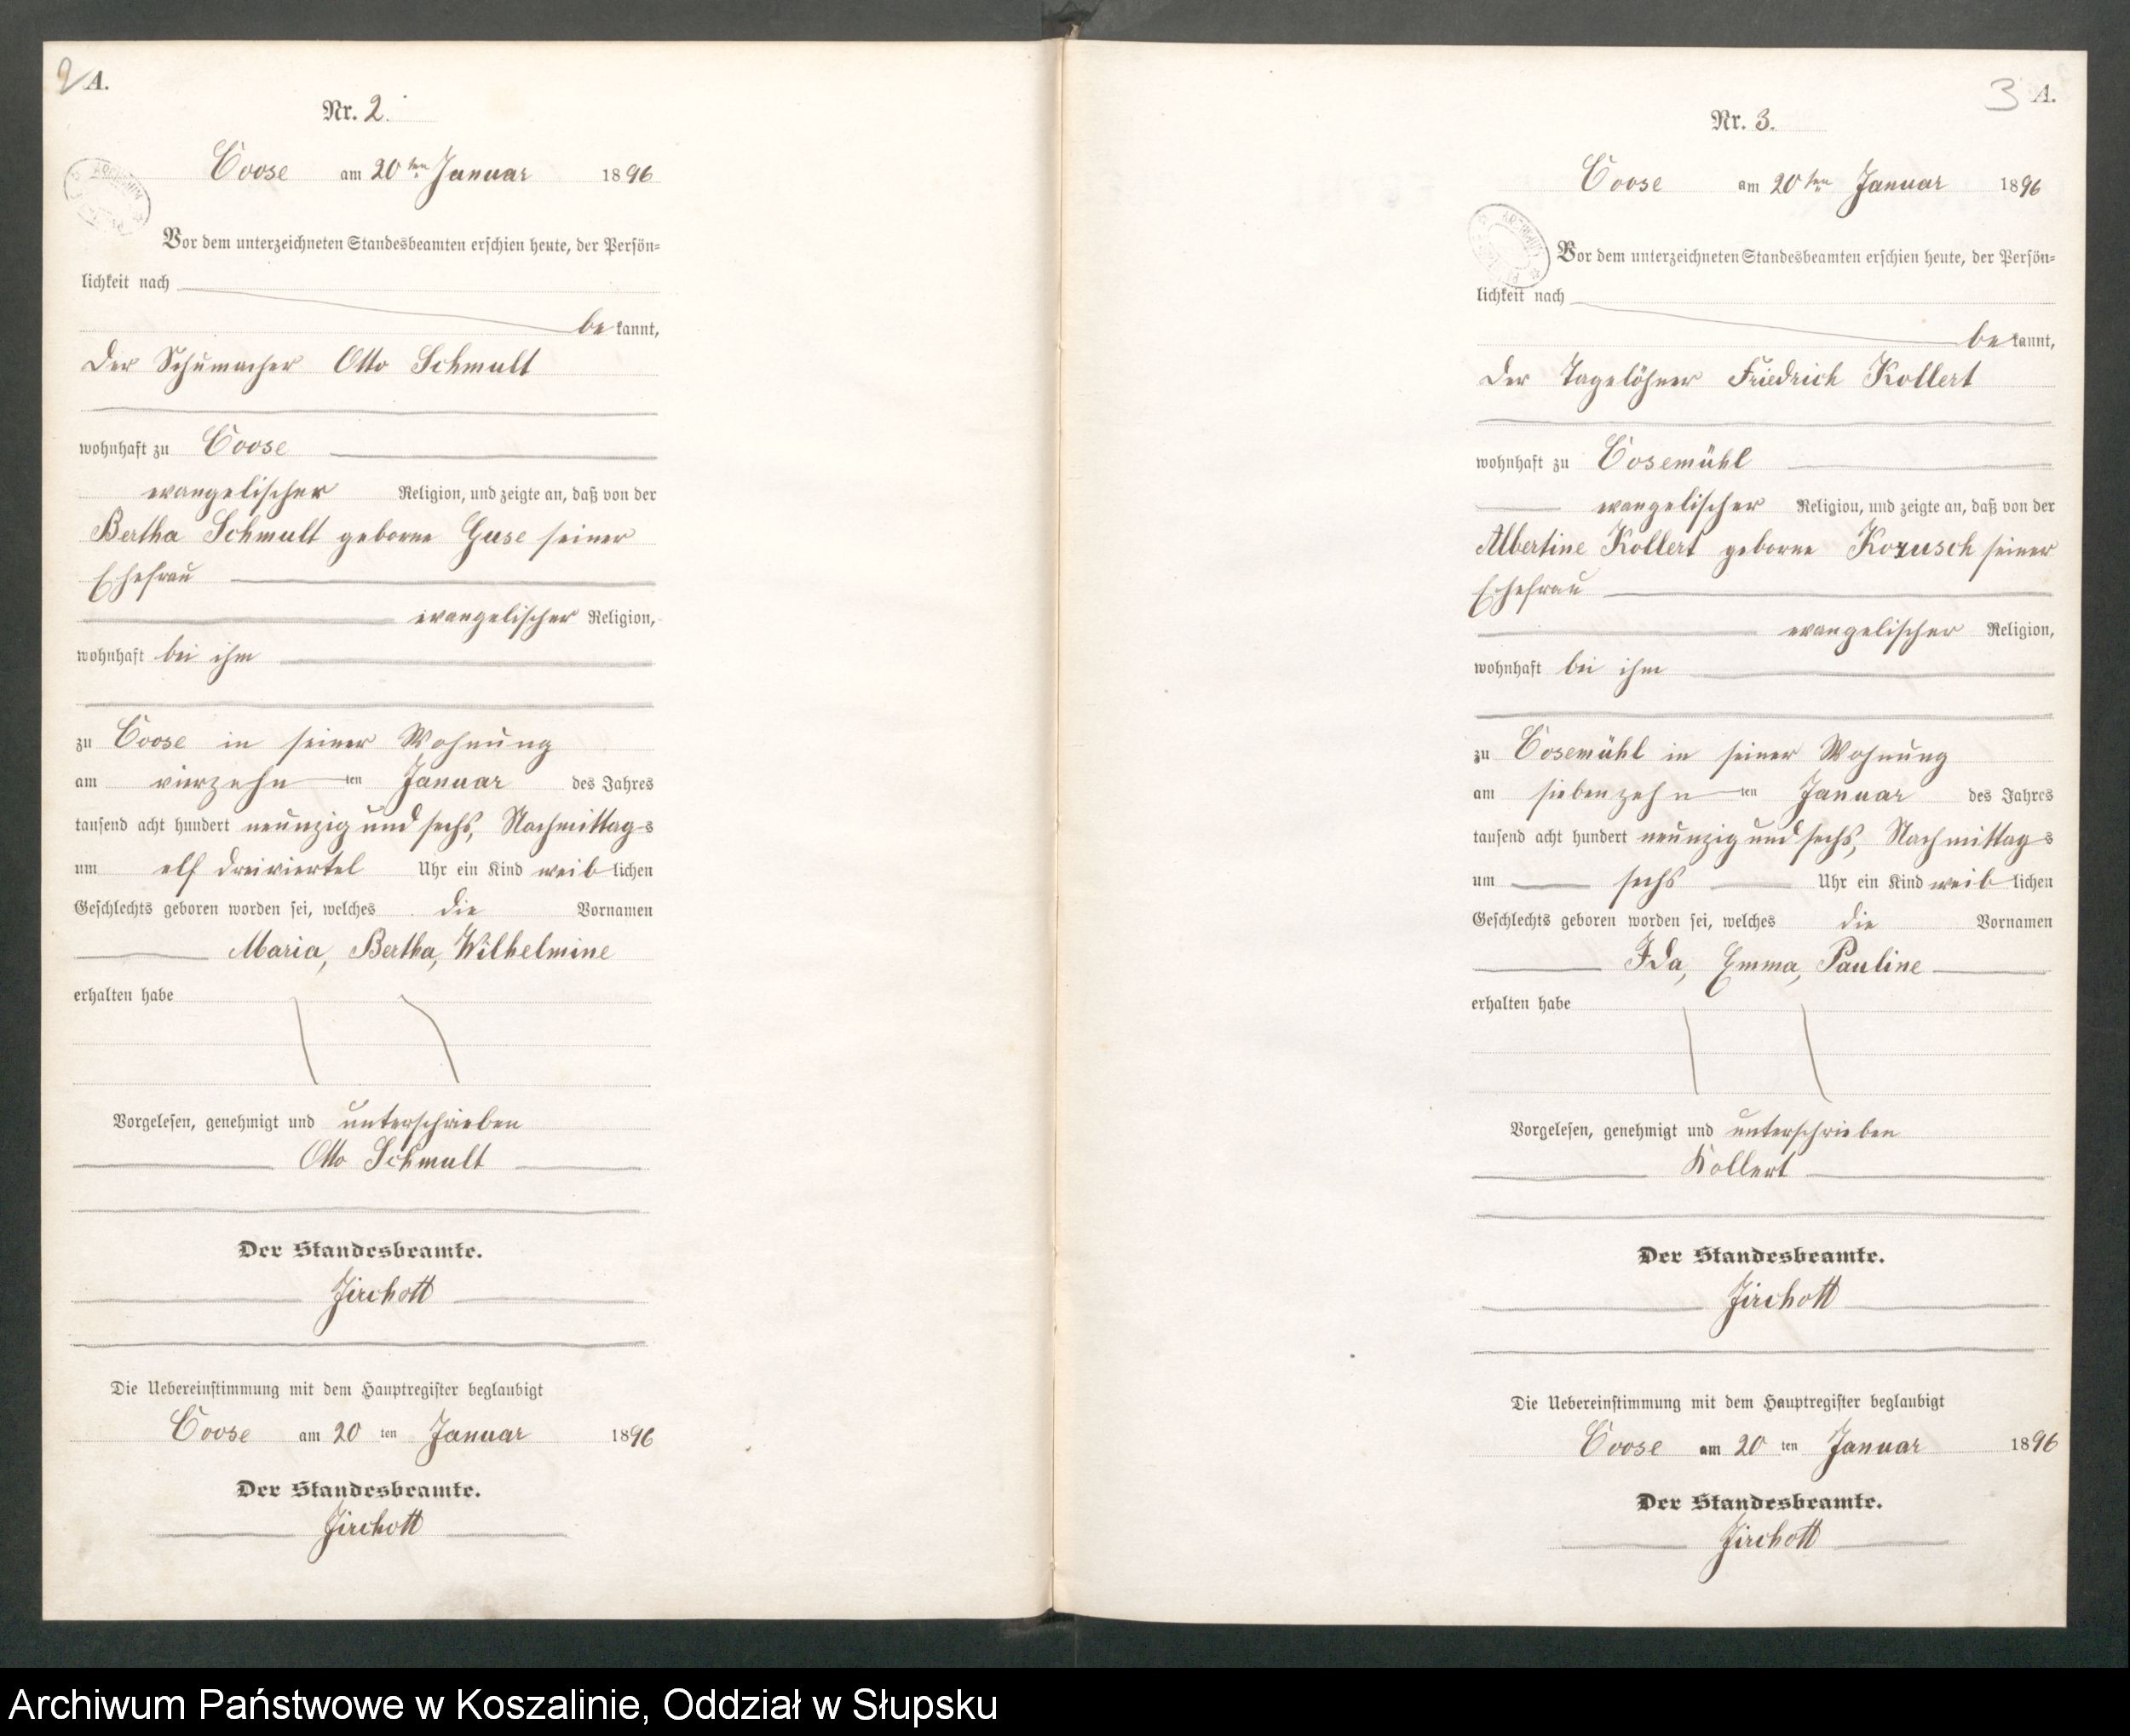 2 A.
Nr. 2.
Coose am 20ten Januar 1896
Vor dem unterzeichneten Standesbeamten erschien heute, der Persön=
lichkeit nach
be kannt,
der Schumacher Otto Schmult
wohnhaft zu Coose
evangelischer Religion, und zeigte an, daß von der
Bertha Schmult geborne Guse seiner
Ehefrau
evangelischer Religion,
wohnhaft bei ihm
zu Coose in seiner Wohnung
am vierzehn ten Januar des Jahres
tausend acht hundert neunzig und sechs, Nachmittag s
um elf dreiviertel Uhr ein Kind weib lichen
Geschlechts geboren worden sei, welches die Vornamen
Maria, Bertha, Wilhelmine
erhalten habe
Vorgelesen, genehmigt und unterschrieben
Otto Schmult
Der Standesbeamte.
Jirchott
Die Uebereinstimmung mit dem Hauptregister beglaubigt
Coose am 20 ten Januar 1896
Der Standesbeamte.
Jirchott
3 A.
Nr. 3.
Coose am 20ten Januar 1896
Vor dem unterzeichneten Standesbeamten erschien heute, der Persön=
lichkeit nach
be kannt,
der Tagelöhner Friedrich Kollert
wohnhaft zu Cosemühl
evangelischer Religion, und zeigte an, daß von der
Albertine Kollert geborne Kozusch seiner
Ehefrau
evangelischer Religion,
wohnhaft bei ihm
zu Cosemühl in seiner Wohnung
am siebenzehn ten Januar des Jahres
tausend acht hundert neunzig und sechs, Nachmittag s
um sechs Uhr ein Kind weib lichen
Geschlechts geboren worden sei, welches die Vornamen
Ida, Emma, Pauline
erhalten habe
Vorgelesen, genehmigt und unterschrieben
Kollert
Der Standesbeamte.
Jirchott
Die Uebereinstimmung mit dem Hauptregister beglaubigt
Coose am 20 ten Januar 1896
Der Standesbeamte.
Jirchott
Archiwum Państwowe w Koszalinie, Oddział w Słupsku